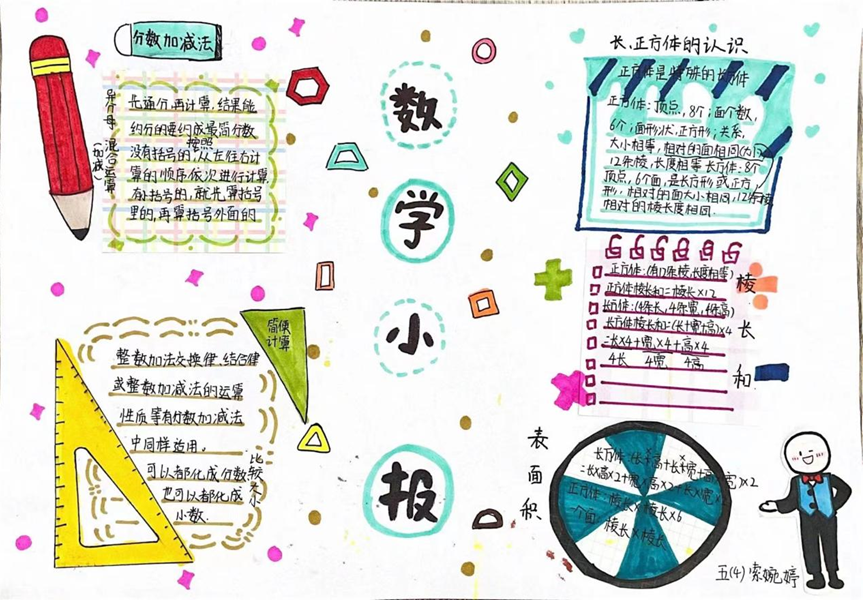 分数加减法
异分母(加减)混合运算
先通分,再计算,结果能
约分的要约成最简分数
按照
没有括号的,从左往右计
算的顺序依次进行计算
有括号的,就先算括号
里的,再算括号外面的.
数
学
小
报
长.正方体的认识
正方体是特殊的长方体
正方体:顶点,8个;面个数,
6个;面形状,正方形;关系,
大小相等,相对的面相同
12条棱,长度相等 长方体:8个
顶点,6个面,是长方形或正方
形,相对的面大小相同,12条棱
相对的棱长度相同.
棱长和
正方体:(有12条棱,长度相等)
正方体棱长和=棱长×12
长方体:(4条长,4条宽,4条高)
长方体棱长和=(长+宽+高)×4
=长×4+宽×4+高×4
4长 4宽 4高
简便
计算
整数加法交换律、结合律
或整数加减法的运算
性质等有分数加减法
中同样适用.
比较大小
可以都化成分数
也可以都化成
小数.
表面积
长方体:(长×高+长×宽+高×宽)×2
=长×高×2+宽×高×2+长×宽×
正方体:棱长×棱长×6
个面:棱长×棱长
五(4) 索婉婷